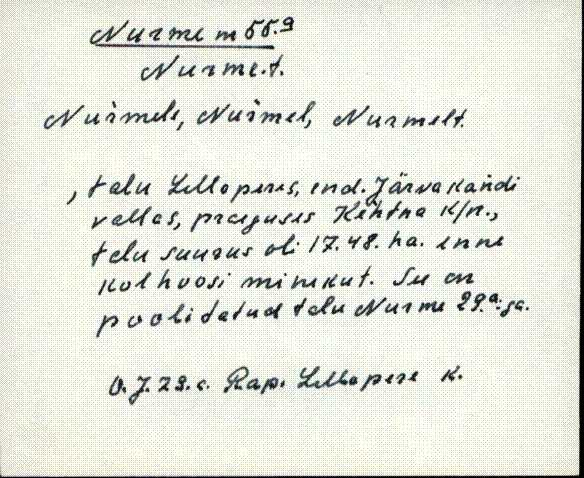 Nurme m 55.9
Nurme.t.
Nurmele, Nurmel, Nurmelt.
, talu Lelloperes, end. Järvakandi
vallas, praeguses Kehtna k/n.,
talu suurus oli 17.48. ha. enne
kolhoosi minekut. Su on
poolitatud talu Nurme 29.a.ga.
O. J. 29. c. Rap. Lellopere k.